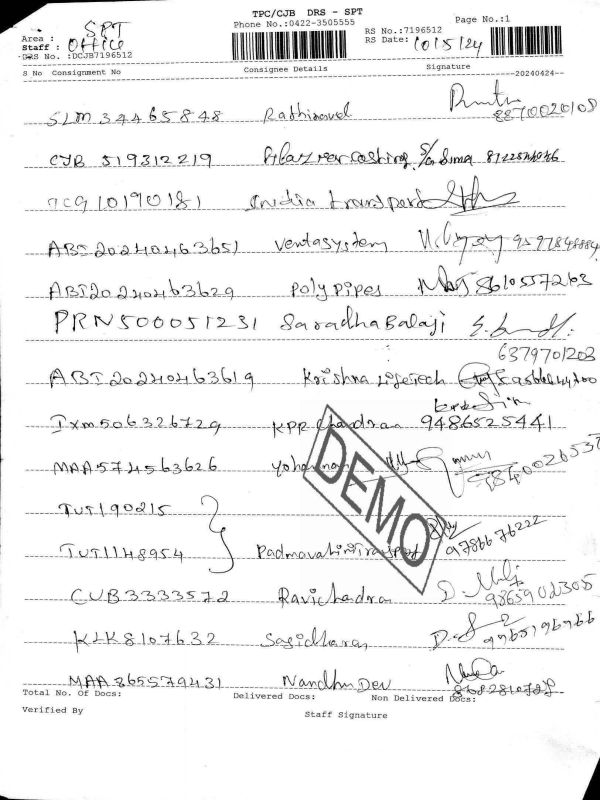 TPC/CJB DRS - SPT
Phone No.:0422-3505555
Page No.:1
Area : SPT
Staff : Office
DRS No. :DCJB7196512
RS No.:7196512
RS Date: 10/5/24
S No Consignment No Consignee Details Signature
20240424
SLM34465848 Rathinavel 8870020108
CJB 519312219
TCG10190181 India transport
ABI20240463651 Ventasystem 9597848884
ABI20240463629 Polypipes 8610557263
PRN500051231 Saradha Balaji
6379701203
ABI20240463619 Krishna LifeTech
Ixm506326729 KPR Chandran 9486525441
MAA574563626
TUT190215
TUT1148954 Padmavathi Transport 9786676222
CUB3333572 Ravichadran 9865902305
KLK8107632 Sasidharan
MAA365579431 Nandhu Dev
DEMO
Total No. Of Docs: Delivered Docs: Non Delivered Docs:
Verified By Staff Signature